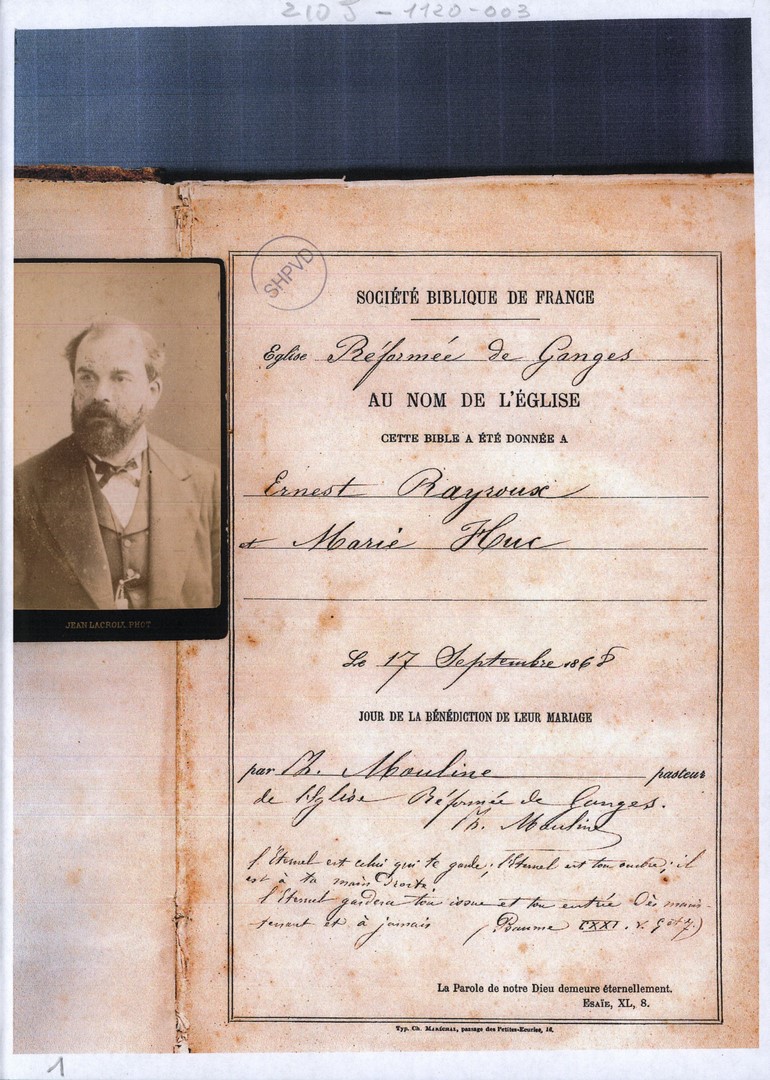 210 J - 1120-003
SHPVD
SOCIÉTÉ BIBLIQUE DE FRANCE
Eglise Réformée de Ganges
AU NOM DE L'ÉGLISE
CETTE BIBLE A ÉTÉ DONNÉE A
Ernest Rayroux
et Marie Huc
JEAN LACROIX PHOT
Le 17 Septembre 1868
JOUR DE LA BÉNÉDICTION DE LEUR MARIAGE
par Th. Mouline pasteur
de l'Eglise Réformée de Ganges.
Th. Mouline
l'Eternel est celui qui te garde; l'Eternel est ton ombre; il
est à ta main droite.
l'Eternel gardera ton issue et ton entrée Dès main-
tenant et à jamais (Psaume CXXI. v. 5 et 7)
La Parole de notre Dieu demeure éternellement.
ESAÏE, XL, 8.
Typ. Ch. MARÉCHAL, passage des Petites-Ecuries, 16.
1